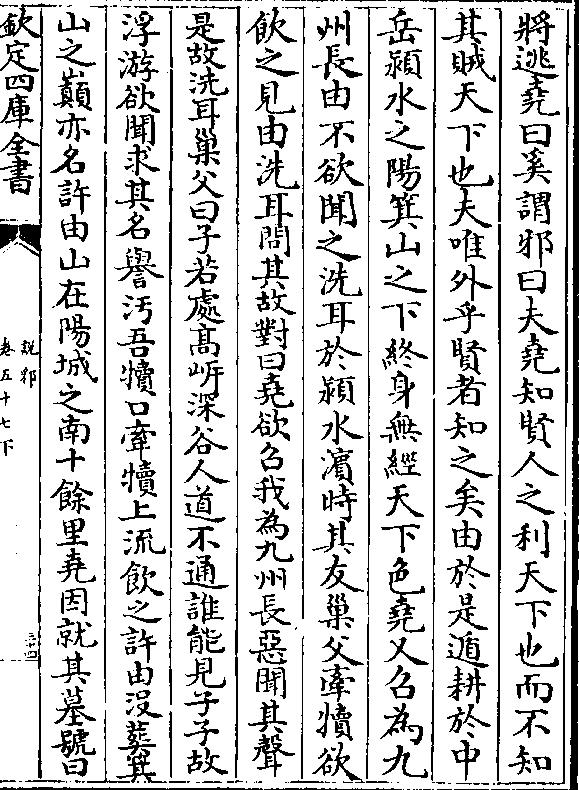 將逃堯曰奚謂邪曰夫堯知賢人之利天下也而不知
其賊天下也夫唯外乎賢者知之矣由於是遁耕於中
岳潁水之陽箕山之下終身無經天下色堯又召為九
州長由不欲聞之洗耳於潁水濱時其友巢父牽犢欲
飲之見由洗耳問其故對曰堯欲召我為九州長惡聞其聲
是故洗耳巢父曰子若處髙岸深谷人道不通誰能見子子故
浮游欲聞求其名譽汚吾犢口牽犢上流飲之許由沒葬箕
山之巔亦名許由山在陽城之南十餘里堯因就其墓號曰
欽定四庫全書
說郛
卷五十七下
三十四